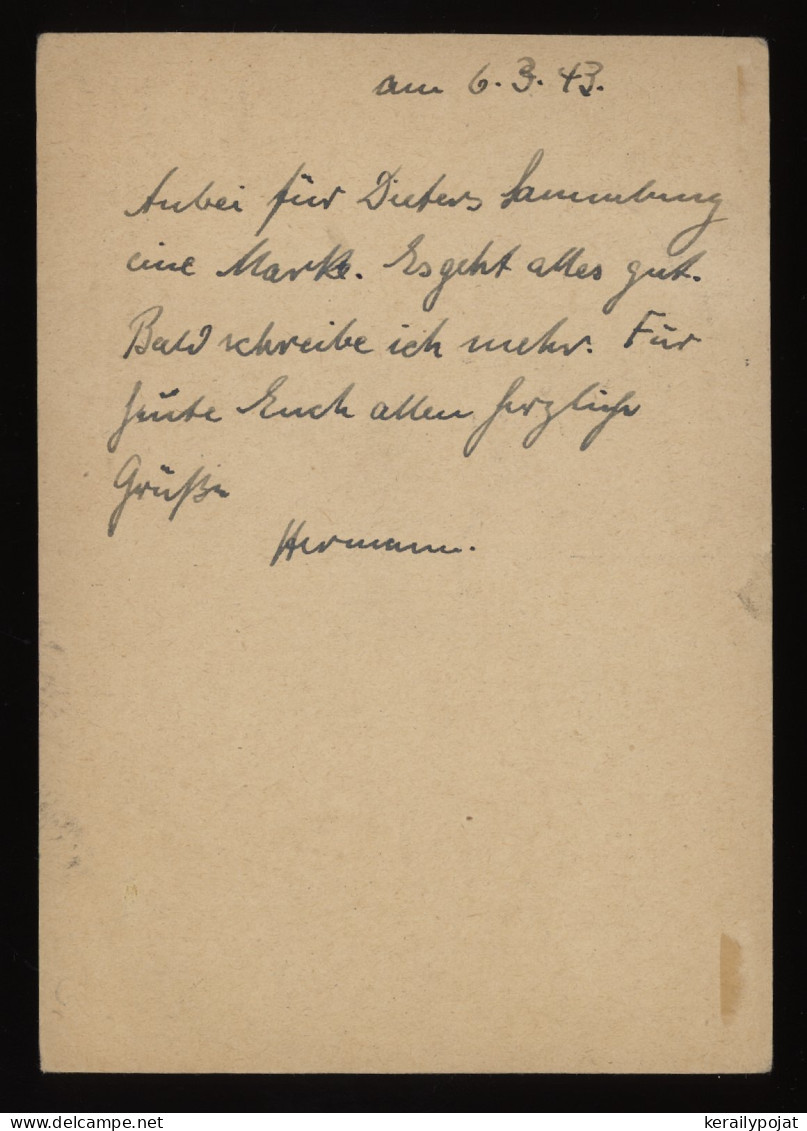 am 6.3.43.
Anbei für Dieters Sammlung
eine Marke. Es geht alles gut.
Bald schreibe ich mehr. Für
heute Euch allen herzliche
Grüße
Hermann.
kerailypojat